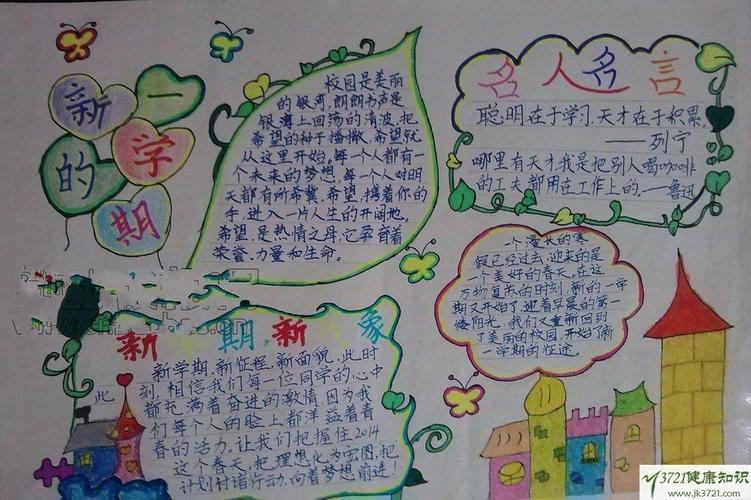 新
一
的
学
期
校园是美丽
的银河,朗朗书声是
银海上回荡的清波,把
希望的种子播撒,希望就
从这里开始。每一个人都有一
个未来的梦想,每一个人对明
天都有所希冀,希望,携着你的
手,进入一片人生的开阔地。
希望,是热情之母,它孕育着
荣誉、力量和生命。
名人名言
聪明在于学习,天才在于积累。
——列宁
哪里有天才,我是把别人喝咖啡
的工夫都用在工作上的。——鲁迅
一个漫长的寒
假已经过去,迎来的是
一个美好的春天。在这
万物复苏的时刻,新的一学
期又开始了,迎着早晨的第一
缕阳光,我们又重新回到
了美丽的校园,开始了新
一学期的征途。
新 期,新 象
新学期,新征程,新面貌,此时
此刻,相信我们每一位同学的心中
都充满着奋进的激情,因为我
们每个人的脸上都洋溢着青
春的活力。让我们把握住2014
这个春天,把理想化为宏图,把
计划付诸行动,向着梦想前进!
3721健康知识
www.jk3721.com